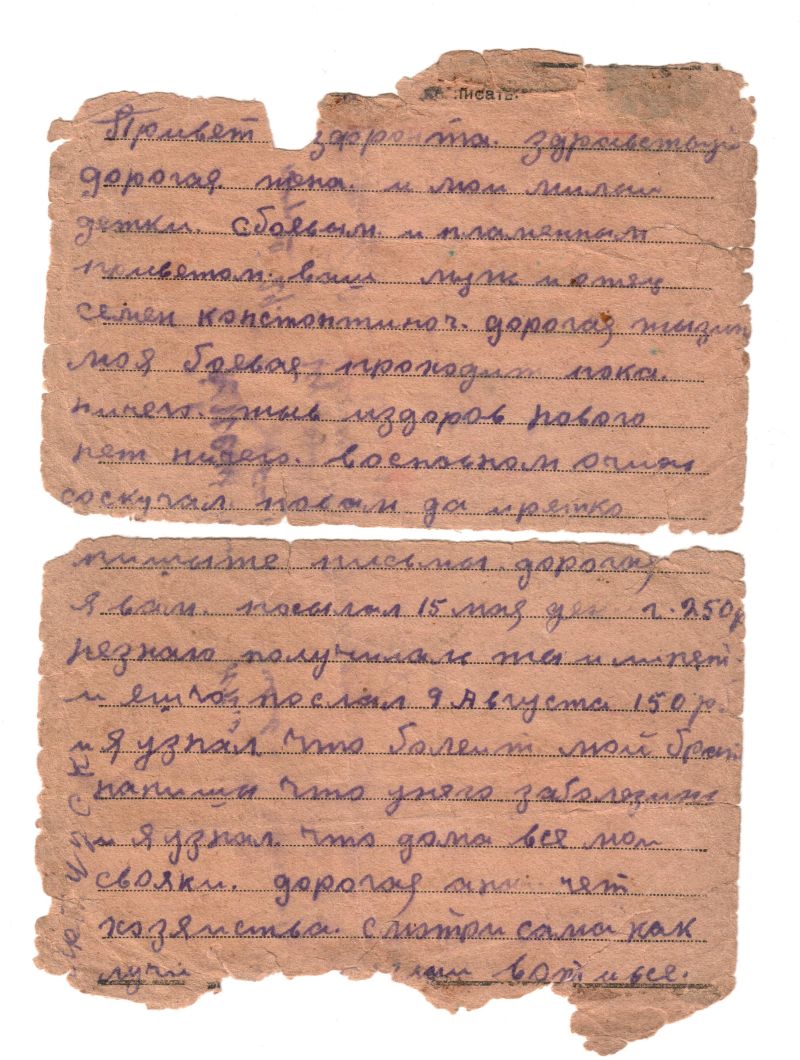 писать.
Привет зфронта. здравствуй
дорогая жена. и мои милаи
детки. сбоевым и пламенным
приветом. ваш муж и отец
семен констонтиноч. дорогая жызнь
моя боевая проходит пока.
ничего. жыв издоров нового
нет ничего. воспавном очинь
соскучал повам да и ретко
пишыте письмы. дорогая
я вам. посылал 15 мая г. 250р
незнаю получилаж ты или нет.
и ящчо послал 9 Августа 150 р.
и я узнал что болеит мой брат
напишы что унего заболезинь
и я узнал. что дома вся мои
свояки. дорогая чет
хозяиства. смотри сама как
лучи вот и все.